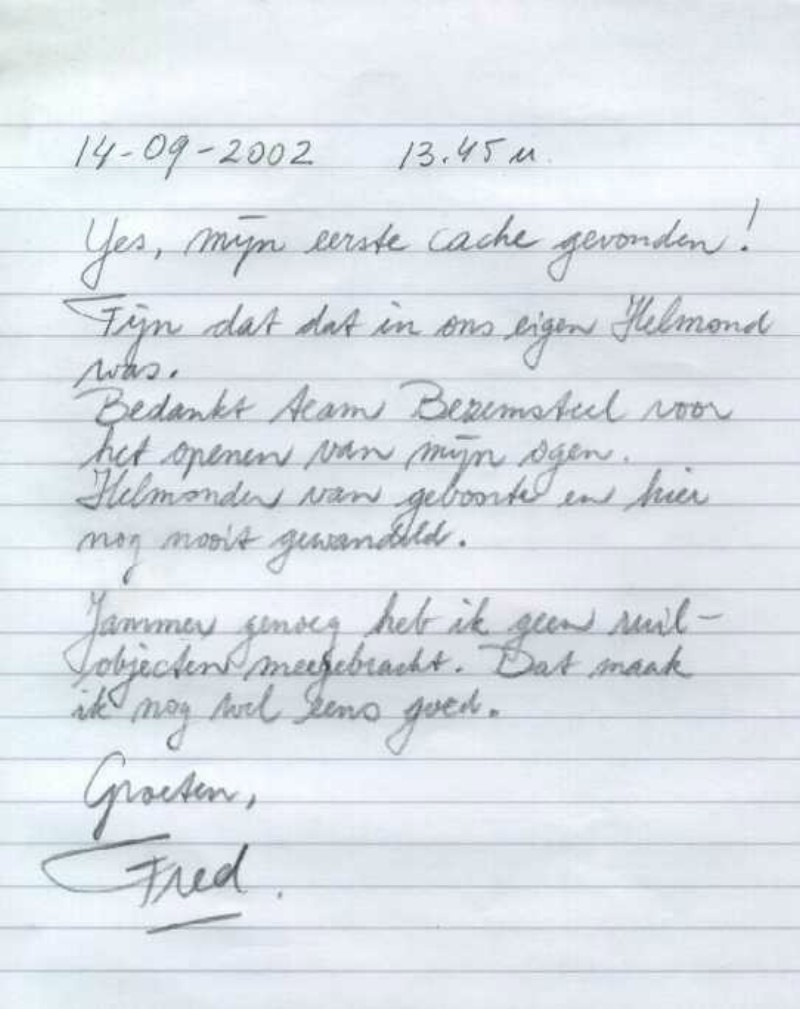 14-09-2002 13.45 u.
Yes, mijn eerste cache gevonden!
Fijn dat dat in ons eigen Helmond
was.
Bedankt team Bezemsteel voor
het openen van mijn ogen.
Helmonder van geboorte en hier
nog nooit gewandeld.
Jammer genoeg heb ik geen ruil-
objecten meegebracht. Dat maak
ik nog wel eens goed.
Groeten,
Fred.